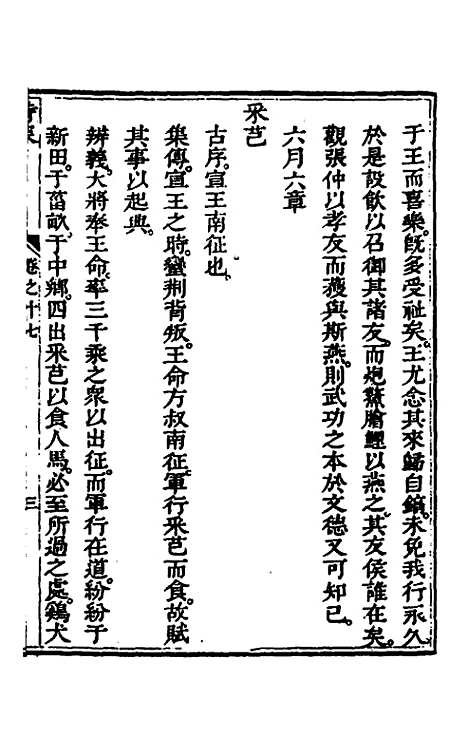 于王而喜樂。旣多受祉矣。王尤念其來歸自鎬。未免我行永久
於是設飮以召御其諸友。而炮鱉膾鯉以燕之。其友侯誰在矣。
觀張仲以孝友而獲與斯燕。則武功之本於文德又可知已。
六月六章
采芑
古序。宣王南征也。
集傳。宣王之時。蠻荆背叛。王命方叔南征。軍行采芑而食。故賦
其事以起興。
辨義。大將奉王命。率三千乘之衆以出征。而軍行在道。紛紛于
新田。于菑畝。于中鄉。四出采芑以食人馬。必至所過之處。鷄犬
卷之十七
三